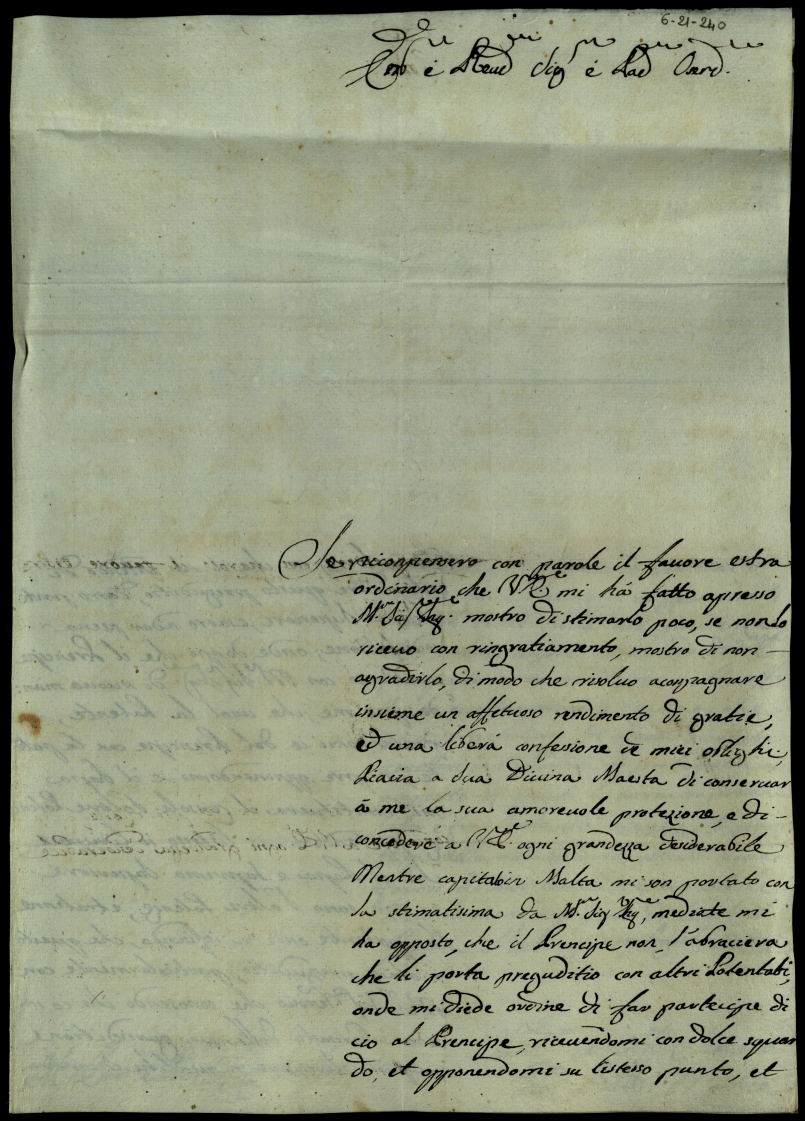 6-21-240
é Reud Sig é Pad Osserd.
Se riconpensero con parole il fauore estra
ordinario che VR.e mi há fatto apresso
mostro di stimarlo poco, se non lo
riceuo con ringratiamento, mostro di non
agradirlo, di modo che risoluo aconpagnare
insieme un affetuoso rendimento di gratie,
ed una liberá confessione de miei oblighi.
Piacia a sua Divina Maesta di conseruar
á me la sua amoreuole protezione, e di
concedere a VR.e ogni grandezza desiderabile
Mentre capitabir Malta mi son portato con
la stimatisima da M.r Sig, mediate mi
ha opposto, che il Prencipe non l'abraciera
che li porta preguditio con altri Potentati,
onde mi diede ordine di far partecipe di
cio al Prencipe, riceuendomi con dolce sguar
do, et opponendomi su l'istesso punto, et